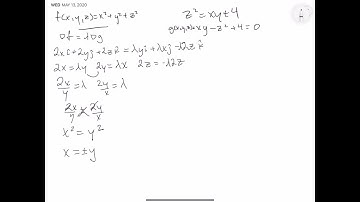 WED, MAY 13, 2020
f(x,y,z)=x²+y²+z²
z²=xy+4
∇f=λ∇g
g(x,y,z)=xy-z²+4=0
2xî+2yĵ+2zk̂=λyî+λxĵ-λ2zk̂
2x=λy 2y=λx 2z=-λ2z
2x/y=λ 2y/x=λ
2x/y = 2y/x
x²=y²
x=±y